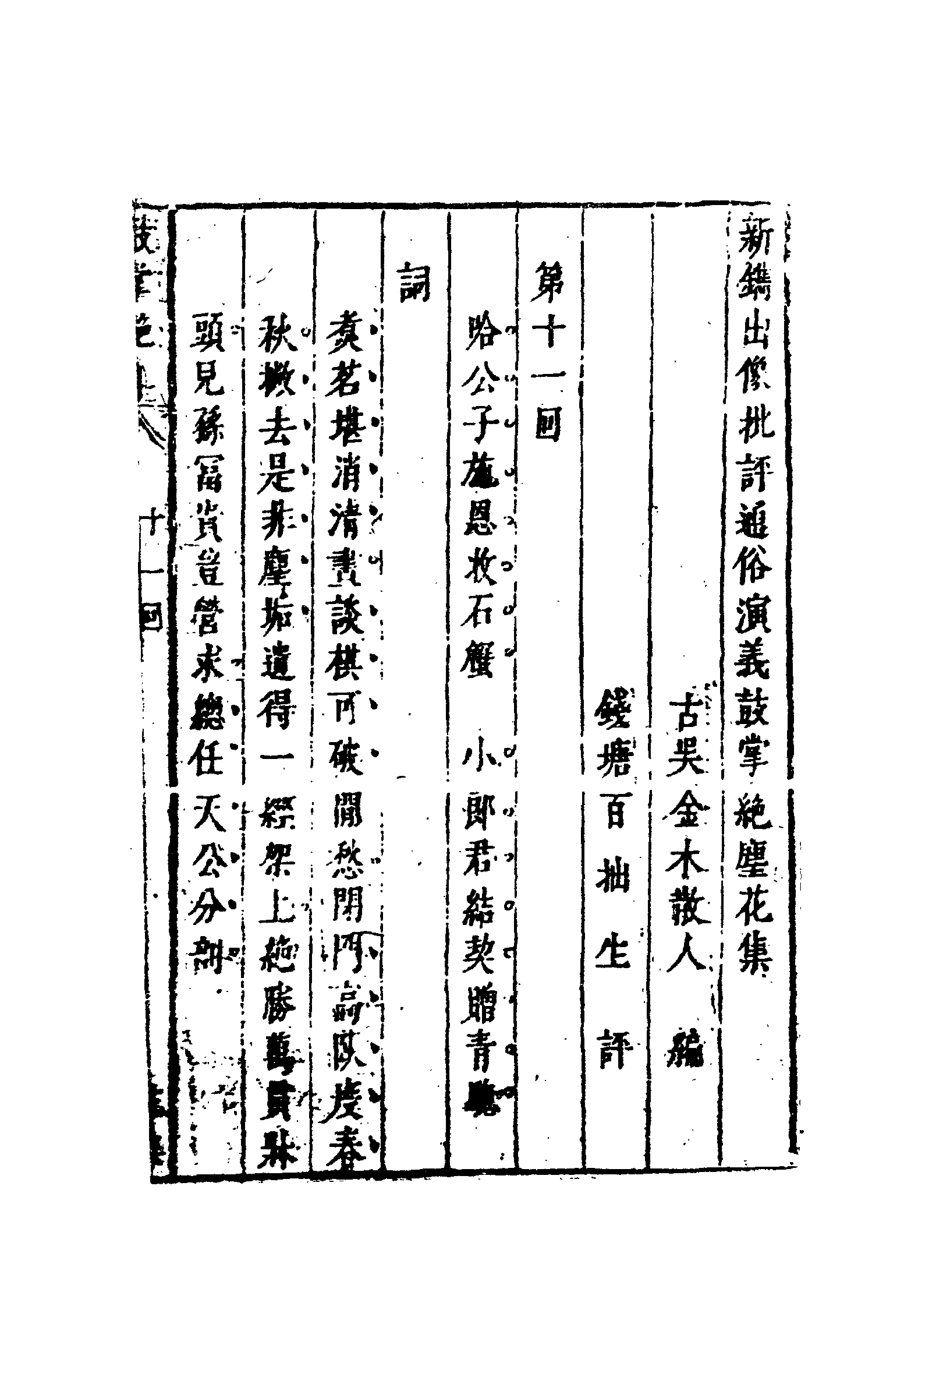 新鐫出像批評通俗演義鼓掌絕塵花集
古吳金木散人　編
錢塘百拙生　評
第十一回
哈公子施恩收石蟹　小郎君結契贈青驄
詞
煑茗堪消清晝談棋可破閒愁閉門高臥度春
秋撇去是非塵垢遺得一經架上絕勝萬貫牀
頭見孫冨貴豈營求總任天公分剖
鼓掌絕塵
十一回
花集